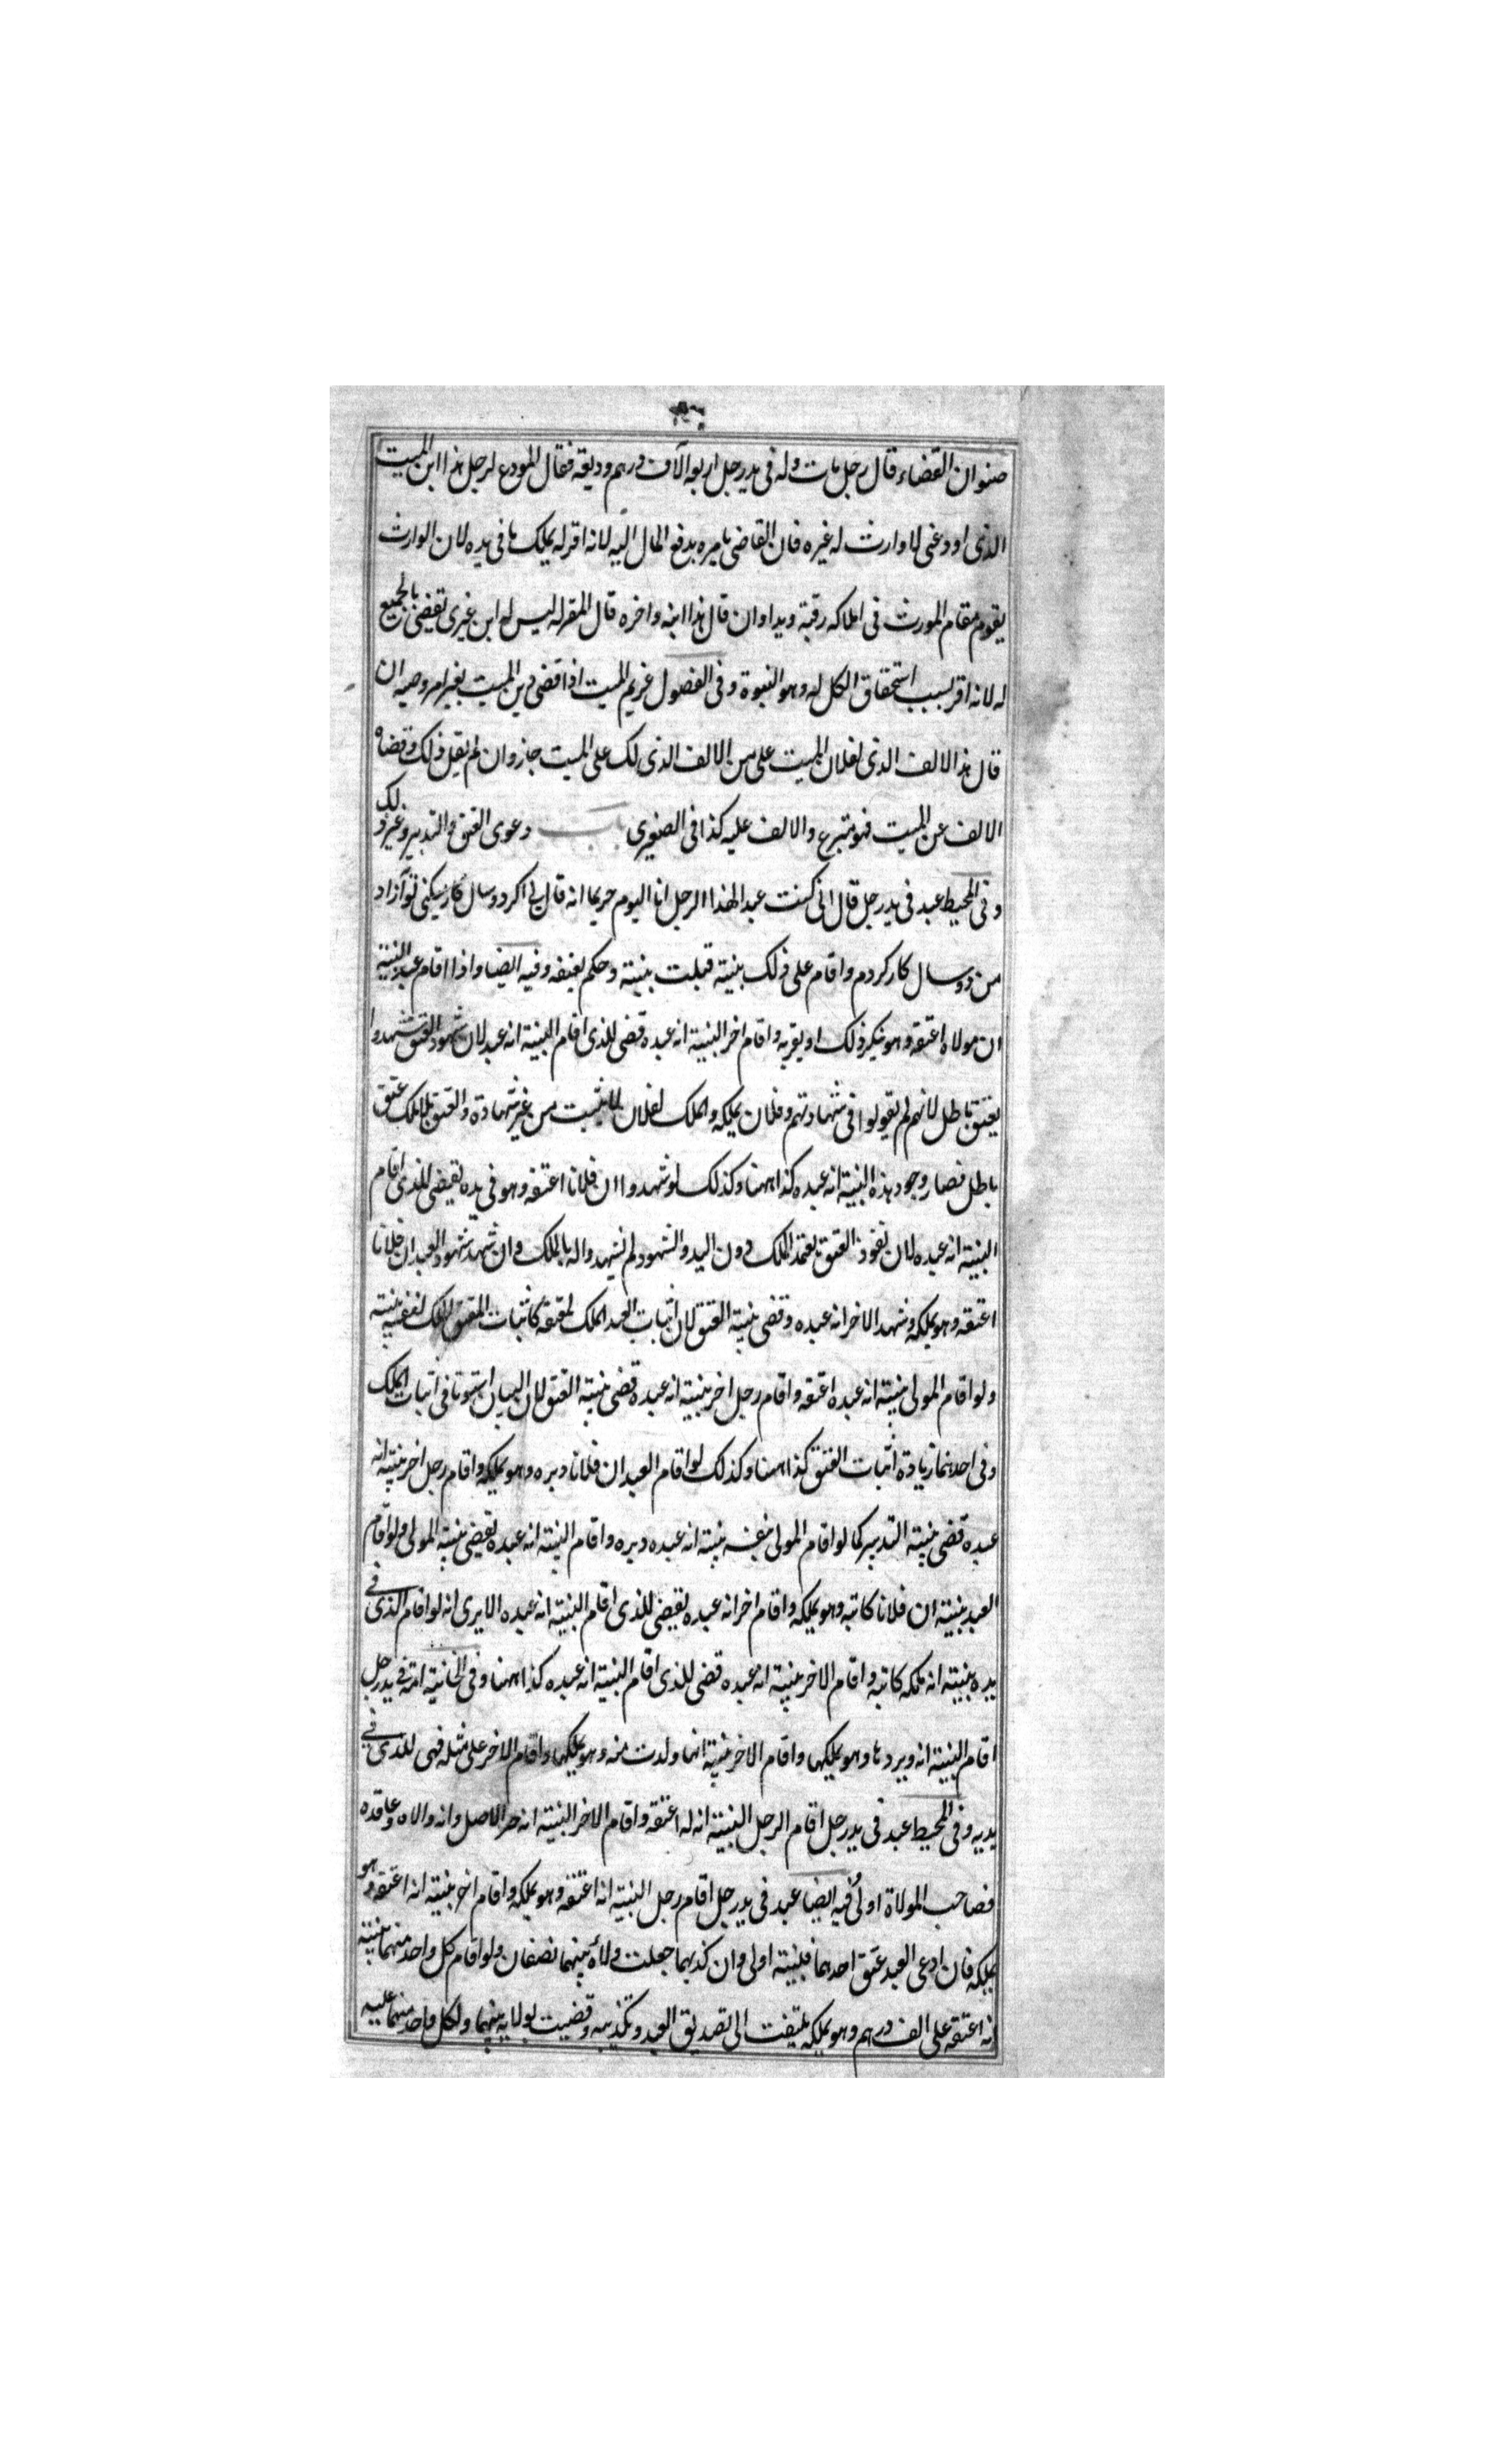 صنوان القضاء قال رجل مات وله فى يد رجل اربعة آلاف درهم وديعة فقال المودع لرجل هذا ابن الميت
الذى اودعنى لا وارث له غيره فان القاضى يامره بدفع المال اليه لانه اقر له بملك ما فى يده لان الوارث
يقوم مقام المورث فى املاكه رقبة ويدا وان قال هذا ابنه واخره قال المقر له ليس له ابن غيرى يقضى بالجميع
له لانه اقر بسبب استحقاق الكل له وهو البنوة وفى الفصول غريم الميت اذا قضى دين الميت بغير امر وصيه ان
قال هذ الالف الذى لفلان الميت على من الالف الذى لك على الميت جاز وان لم يقل ذلك وقضاه
الالف عن الميت فهو متبرع والالف عليه كذا فى الصغرى باب دعوى العتق والتدبير وغير ذلك
وفى المحيط عبد فى يد رجل قال انى كنت عبدا لهذا الرجل انا اليوم حر بما انه قال لى اكر دو سال كار ميكنى تو آزاد
من دو سال كار كردم واقام على ذلك بينة قبلت بينته وحكم بعتقه وفيه ايضا واذا اقام عبد البينة
ان مولاه اعتقه وهو ينكر ذلك او يقر به واقام اخر البينة انه عبده قضى للذى اقام البينة انه عبد لان شهود العتق شهدوا
بعتق باطل لانهم لم يقولوا فى شهادتهم وفلان يملكه والملك لفلان لا يثبت من غير شهادة والعتق بلا ملك عتق
باطل فصار وجود هذه البينة انه عبده كذا ههنا وكذلك لو شهدوا ان فلانا اعتقه وهو فى يده يقضى للذى اقام
البينة انه عبده لان نفوذ العتق يعتمد الملك دون اليد والشهود لم يشهدوا له بالملك وان شهد شهود العبد ان فلانا
اعتقه وهو يملكه وشهد الاخر انه عبده وقضى بينة العتق لان اثبات العبد الملك لمعتقه كاثبات المعتق الملك لنفسه بينة
ولو اقام المولى بينة انه عبده اعتقه واقام رجل اخر بينة انه عبده قضى بينة العتق لان البيان استوتا فى اثبات الملك
وفى احدهما زيادة اثبات العتق كذا ههنا وكذلك لو اقام العبد ان فلانا دبره وهو يملكه واقام رجل اخر بينة انه
عبده قضى بينة التدبير كما لو اقام المولى بنفسه بينة انه عبده دبره واقام البينة انه عبده يقضى بينة المولى ولو اقام
العبد بينة ان فلانا كاتبه وهو يملكه واقام اخر انه عبده يقضى للذى اقام البينة انه عبده الا يرى انه لو اقام الذى فى
يده بينة انه ملكه كاتبه واقام الاخر بينة انه عبده قضى للذى اقام البينة انه عبده كذا ههنا وفى الخانية امة فى يد رجل
اقام البينة انه دبرها وهو يملكها واقام الاخر بينة انها ولدت منه وهو يملكها واقام الاخر على مثله فهى للذى فى
يديه وفى المحيط عبد فى يد رجل اقام الرجل البينة انه له اعتقه واقام الاخر البينة انه حر الاصل وانه والاه وعاقده
فصاحب الموالاة اولى وفيه ايضا عبد فى يد رجل اقام رجل البينة انه اعتقه وهو يملكه واقام اخر بينة انه اعتقه وهو
يملكه فان ادعى العبد عتق احدهما فبينته اولى وان كذبهما جعلت ولاءه بينهما نصفان ولو اقام كل واحد منهما بينة
انه اعتقه على الف درهم وهو يملكه يلتفت الى تصديق العبد وتكذيبه وقضيت بولايه بينهما ولكل واحد منهما عليه